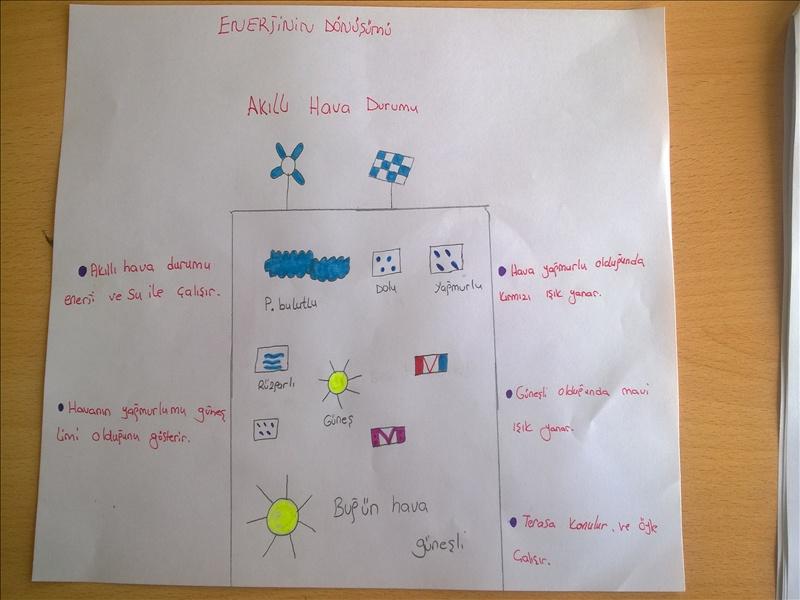 ENERJİNİN DÖNÜŞÜMÜ
AKıLLı Hava Durumu
Akıllı hava durumu
enerji ve Su ile çalışır.
Havanın yağmurlumu güneş
limi olduğunu gösterir.
P. bulutlu
Dolu
Yağmurlu
Rüzgarlı
Güneş
Bugün hava
güneşli
Hava yağmurlu olduğunda
kırmızı ışık yanar.
Güneşli olduğunda mavi
ışık yanar.
Terasa konulur. ve öyle
Çalışır.